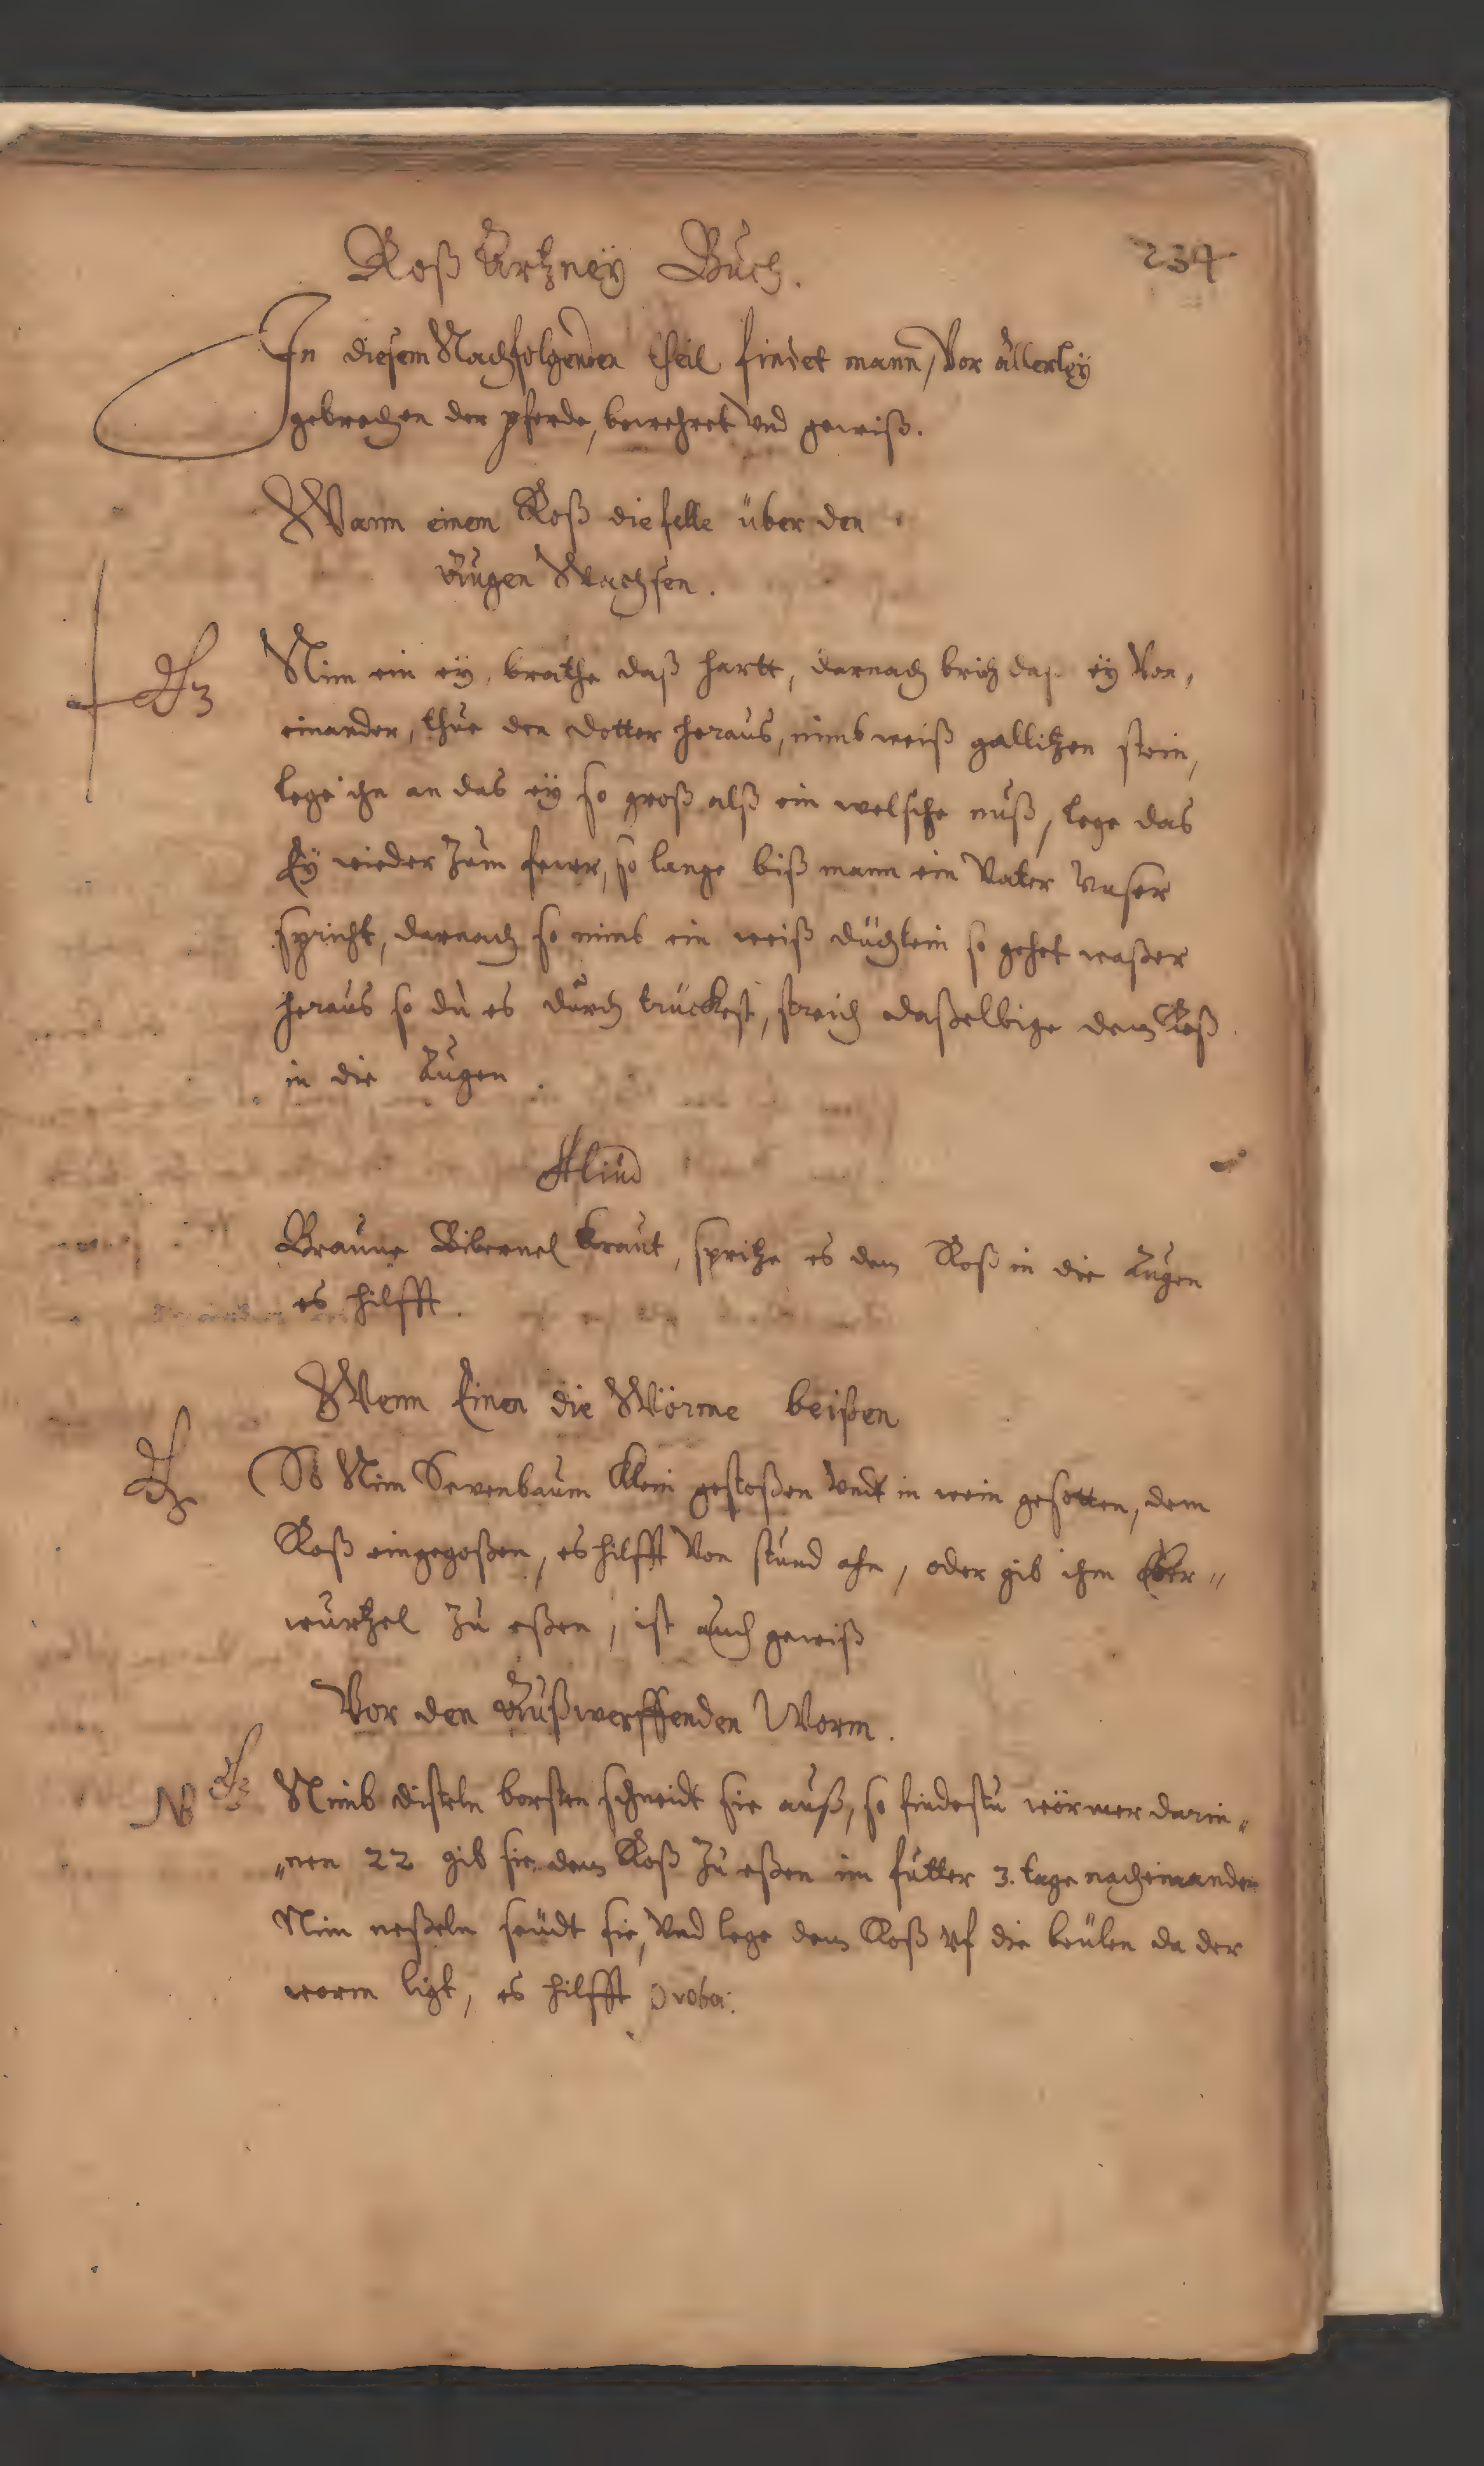 Roß Artzneÿ Buch.
234
In diesem Nachfolgenden theil findet mann, Vor allerleÿ
gebrechen der pferde, bewehret Und gewiß.
Wann einem Roß die felle über den
Augen Wachsen.
Nim ein eÿ, brathe daß hartt, darnach brich daß eÿ Von,
einander, thue den dotter heraus, nimb weiß gallitzen stein,
lege ihn an das eÿ so groß alß ein welsche nuß, lege das
Eÿ wieder zum feuer, so lange biß mann ein Vater Unser
spricht, darnach so nimb ein weiß düchlein so gehet waßer
heraus so du es durch trückest, streich daßelbige dem Roß
in die Augen.
Aliud
Braune Bibernel kraut, spritze es dem Roß in die Augen
es hilfft.
Wenn Einen die Wörme beißen
So Nim Sevenbaum klein gestoßen Undt in wein gesotten, dem
Roß eingegoßen, es hilfft Von stund ahn, oder gib ihm Eber„
wurtzel zu eßen, ist auch gewiß
Vor den Außwerffenden Worm.
NB Nimb disteln borsten schneidt sie auß, so findestu wörmer darin„
„nen 22 gib sie dem Roß zu eßen im futter 3. tage nacheinander
Nim neßeln seudt sie, Und lege dem Roß Uf die beulen da der
worm ligt, es hilfft Proba: